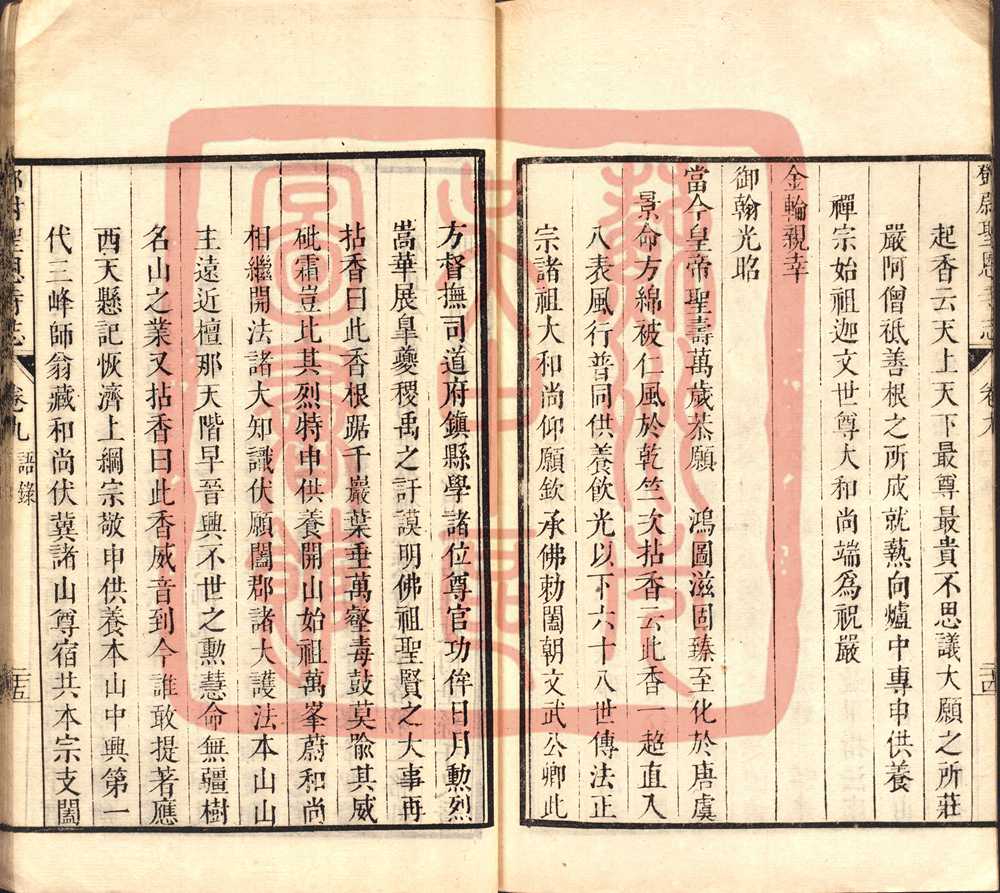 鄧尉聖恩寺志 卷九
起香云天上天下最尊最貴不思議大願之所莊
嚴阿僧祇善根之所成就爇向爐中專申供養
禪宗始祖迦文世尊大和尚端為祝嚴
金輪親幸
御翰光昭
當今皇帝聖壽萬歲恭願 鴻圖滋固臻至化於唐虞
景命方綿被仁風於乾竺次拈香云此香一趂直入
八表風行普同供養飲光以下六十八世傳法正
宗諸祖大和尚仰願欽承佛勅闔朝文武公卿此
二十四
方督撫司道府鎮縣學諸位尊官功侔日月勲烈
嵩華展臯夔稷禹之訏謨明佛祖聖賢之大事再
拈香曰此香根踞千巖葉垂萬壑毒鼓莫喻其威
砒霜豈比其烈特申供養開山始祖萬峯蔚和尚
相繼開法諸大知識伏願闔郡諸大護法本山山
主遠近檀那天階早晉興不世之勲慧命無疆樹
名山之業又拈香曰此香威音到今誰敢提著應
西天懸記恢濟上綱宗敬申供養本山中興第一
代三峰師翁藏和尚伏冀諸山尊宿共本宗支闔
鄧尉聖恩寺志 卷九 語錄
二十五